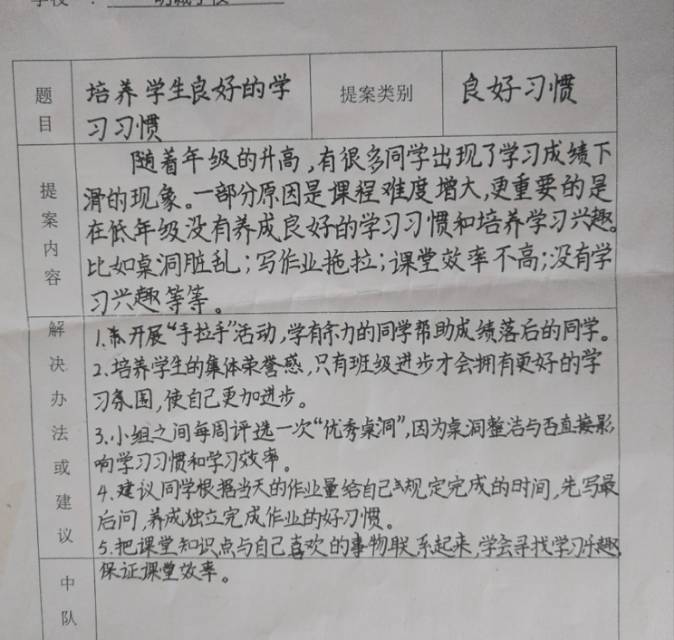 题目 培养学生良好的学习习惯 提案类别 良好习惯
提案内容
随着年级的升高,有很多同学出现了学习成绩下
滑的现象。一部分原因是课程难度增大,更重要的是
在低年级没有养成良好的学习习惯和培养学习兴趣。
比如桌洞脏乱;写作业拖拉;课堂效率不高;没有学
习兴趣等等。
解决办法或建议
1.开展“手拉手”活动,学有余力的同学帮助成绩落后的同学。
2.培养学生的集体荣誉感,只有班级进步才会拥有更好的学
习氛围,使自己更加进步。
3.小组之间每周评选一次“优秀桌洞”,因为桌洞整洁与否直接影
响学习习惯和学习效率。
4.建议同学根据当天的作业量给自己规定完成的时间,先写最
后问,养成独立完成作业的好习惯。
5.把课堂知识点与自己喜欢的事物联系起来,学会寻找学习乐趣,
保证课堂效率。
中队